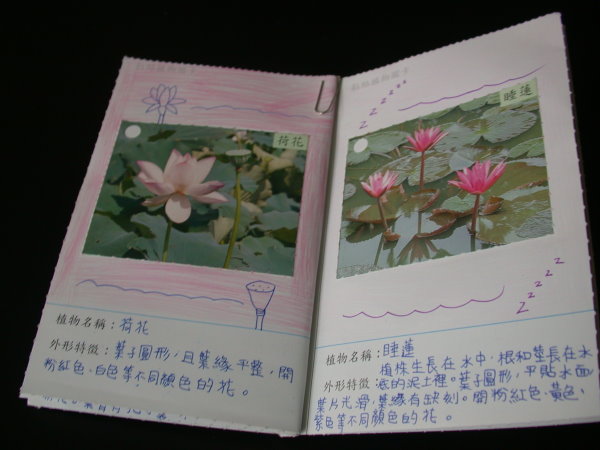 荷花
植物名稱：荷花
外形特徵：葉子圓形，且葉緣平整，開
粉紅色、白色等不同顏色的花。
睡蓮
Z Z Z Z Z
Z Z Z Z Z
植物名稱：睡蓮
植株生長在水中，根和莖長在水
外形特徵：底的泥土裡。葉子圓形，平貼水面，
葉片光滑，葉緣有缺刻。開粉紅色、黃色、
紫色等不同顏色的花。